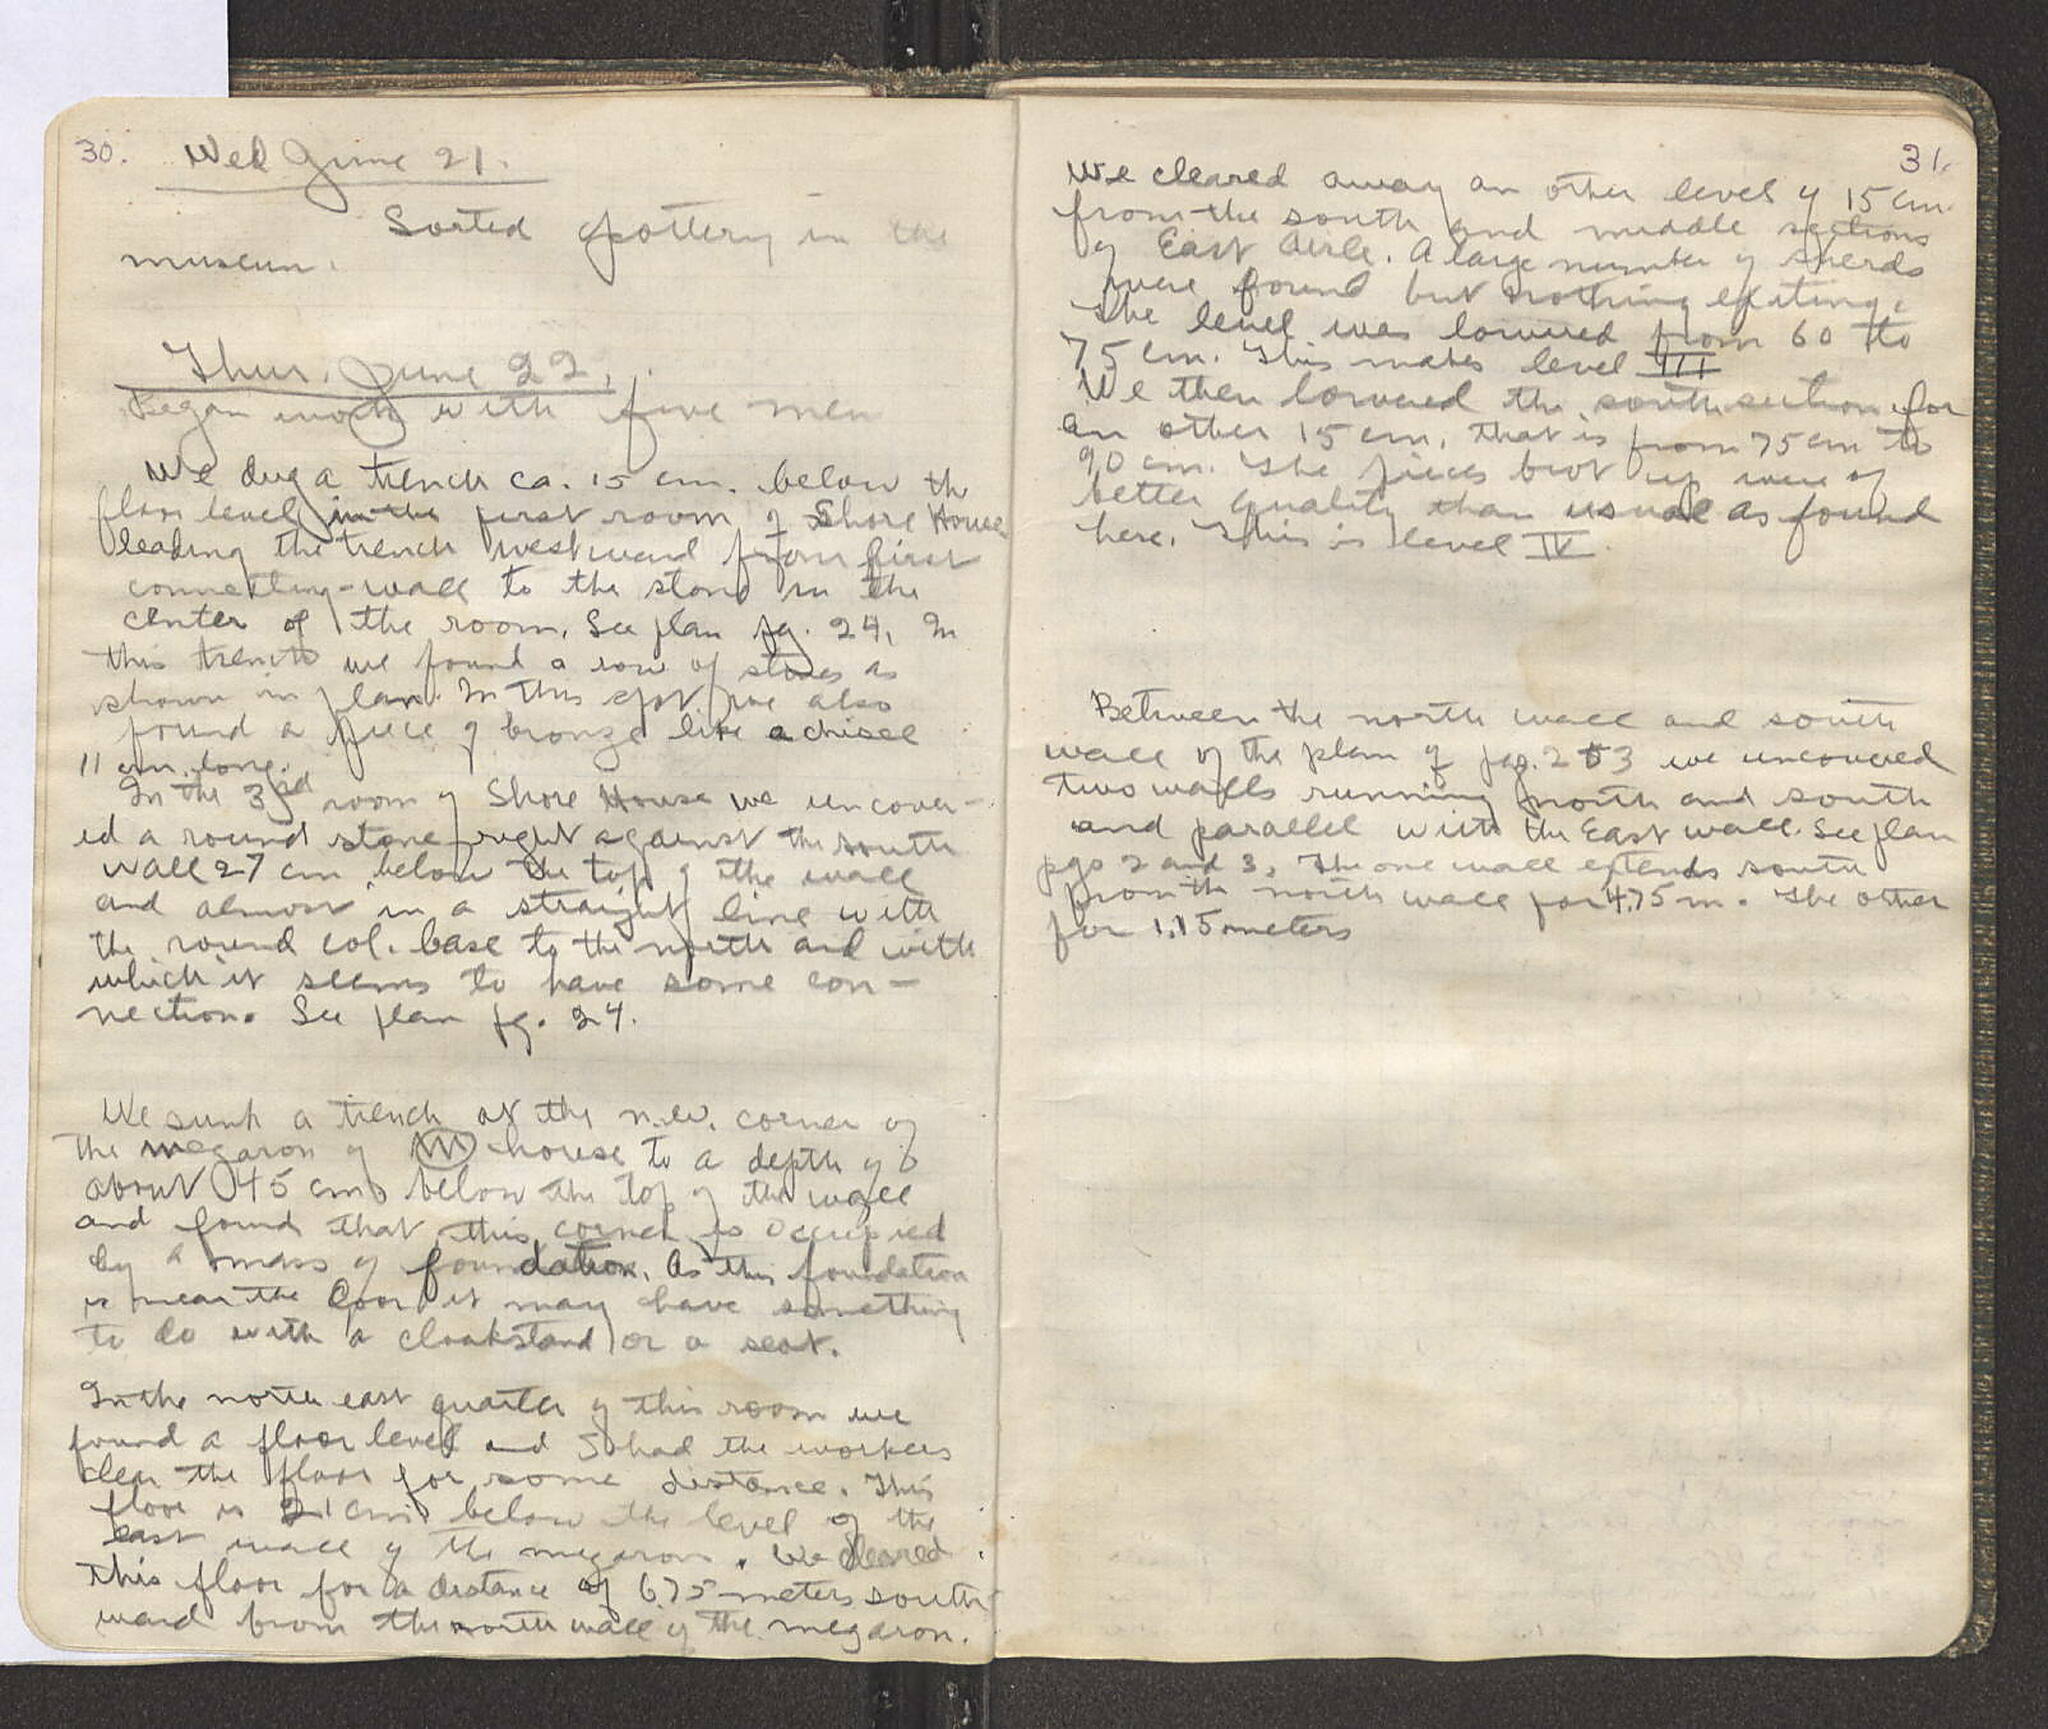 30. Wed June 21.
Sorted pottery in the
museum.
Thur. June 22.
Began work with five men
We dug a trench ca. 15 cm. below the
floor level in the first room of Shore House
leading the trench westward from first
connecting-wall to the stone in the
center of the room. See plan pg. 24. In
this trench we found a row of stones as
shown in plan. In this spot we also
found a piece of bronze like a chisel
11 cm. long.
In the 3rd room of Shore House we uncover-
ed a round stone right against the south
wall 27 cm below the top of the wall
and almost in a straight line with
the round col. base to the north and with
which it seems to have some con-
nection. See plan pg. 24.
We sunk a trench at the n.w. corner of
the megaron of M house to a depth of
about 45 cm below the top of the wall
and found that this corner is occupied
by a mass of foundation. As this foundation
is near the door it may have something
to do with a cloakstand or a seat.
In the north east quarter of this room we
found a floor level and I had the workers
clear the floor for some distance. This
floor is 21 cm below the level of the
east wall of the megaron. We cleared
this floor for a distance of 6.75 meters south-
ward from the north wall of the megaron.
31.
We cleared away an other level of 15 cm.
from the south and middle sections
of East Aisle. A large number of sherds
were found but nothing exiting.
The level was lowered from 60 to
75 cm. This makes level III
We then lowered the south section for
an other 15 cm, that is from 75 cm to
90 cm. The pieces brot up were of
better quality than usual as found
here. This is level IV.
Between the north wall and south
wall of the plan of pg. 2 & 3 we uncovered
two walls running north and south
and parallel with the East wall. See plan
pgs 2 and 3. The one wall extends south
from the north wall for 4.75 m. The other
for 1.15 meters